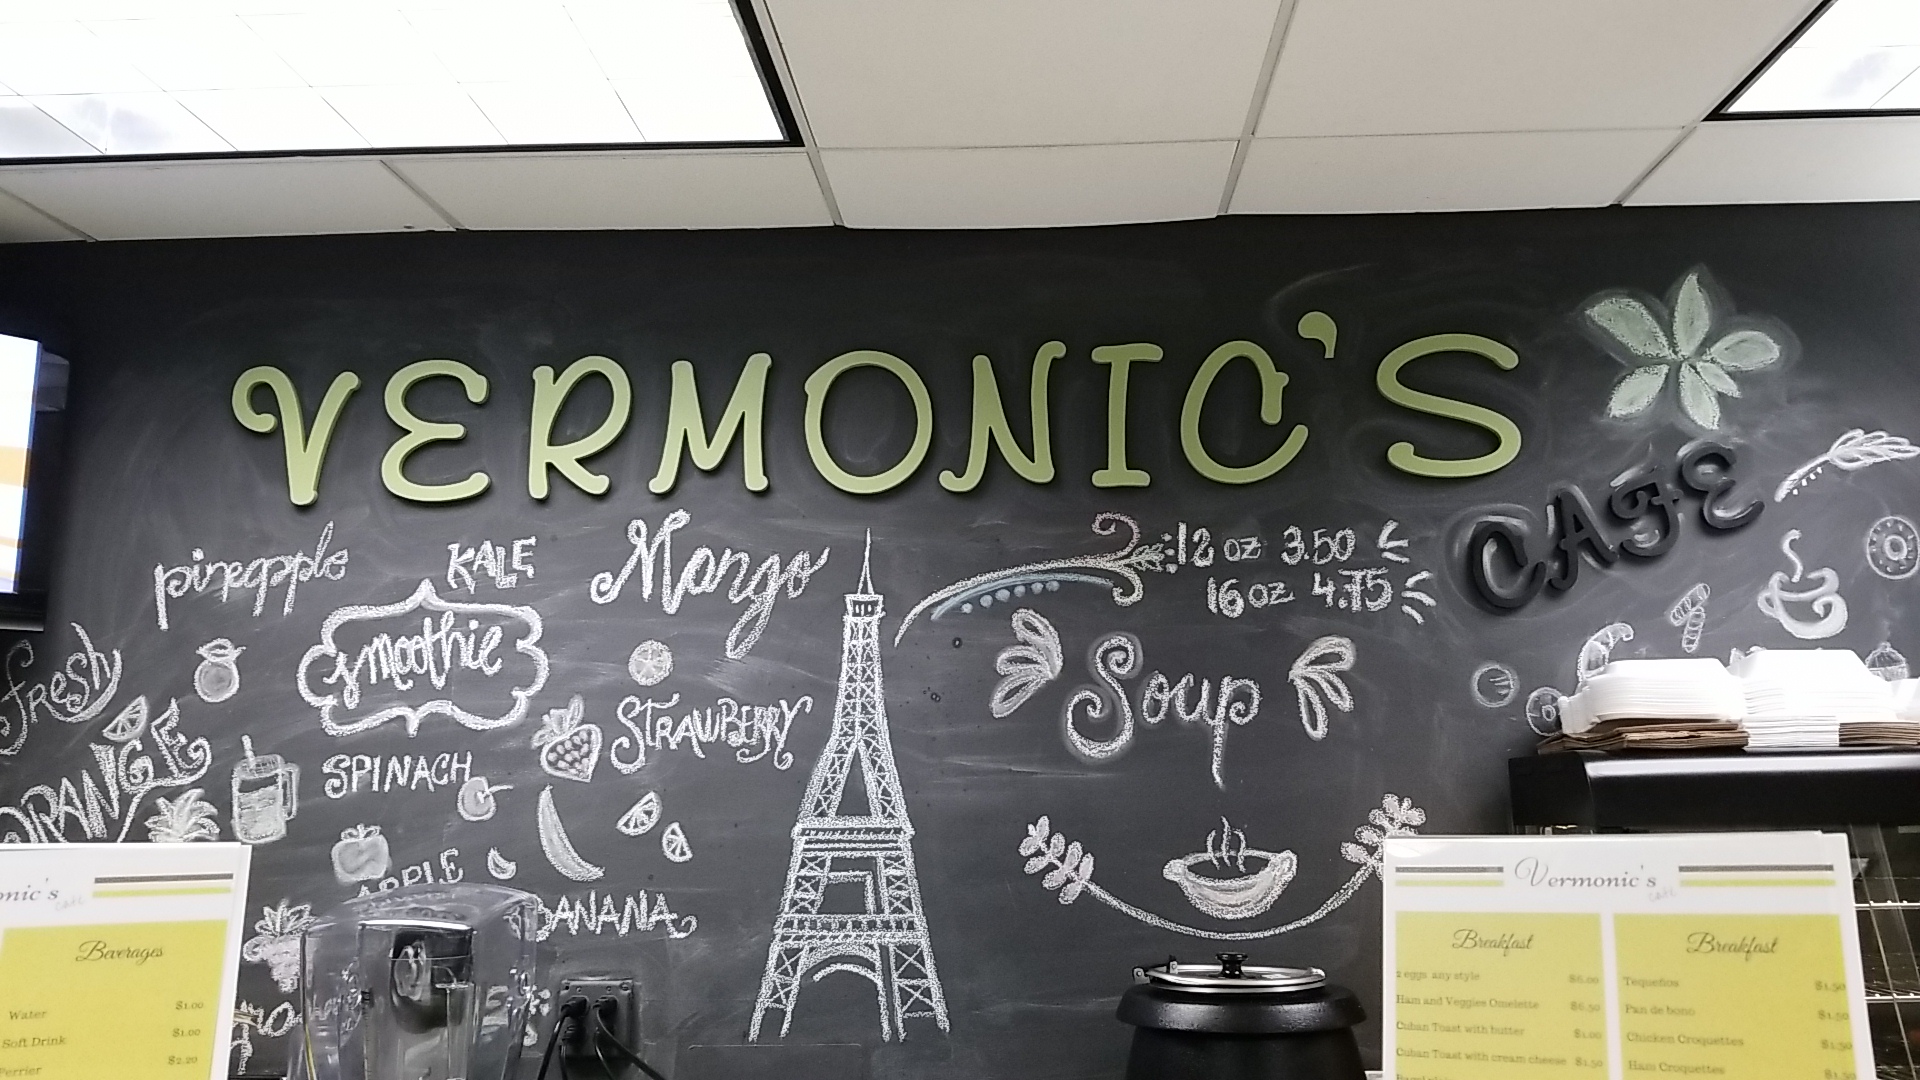 VERMONIC'S
CAFE
pineapple
KALE
Mango
12 oz 3.50
16 oz 4.75
fresh
smoothie
STRAWBERRY
Soup
ORANGE
SPINACH
APPLE
BANANA
Beverages
Water $1.00
Soft Drink $1.00
Perrier $2.20
Vermonic's
cafe
Breakfast
2 eggs any style $6.00
Ham and Veggies Omelette $6.50
Cuban Toast with butter $1.00
Cuban Toast with cream cheese $1.50
Breakfast
Tequeños $1.50
Pan de bono $1.50
Chicken Croquettes $1.50
Ham Croquettes $1.50